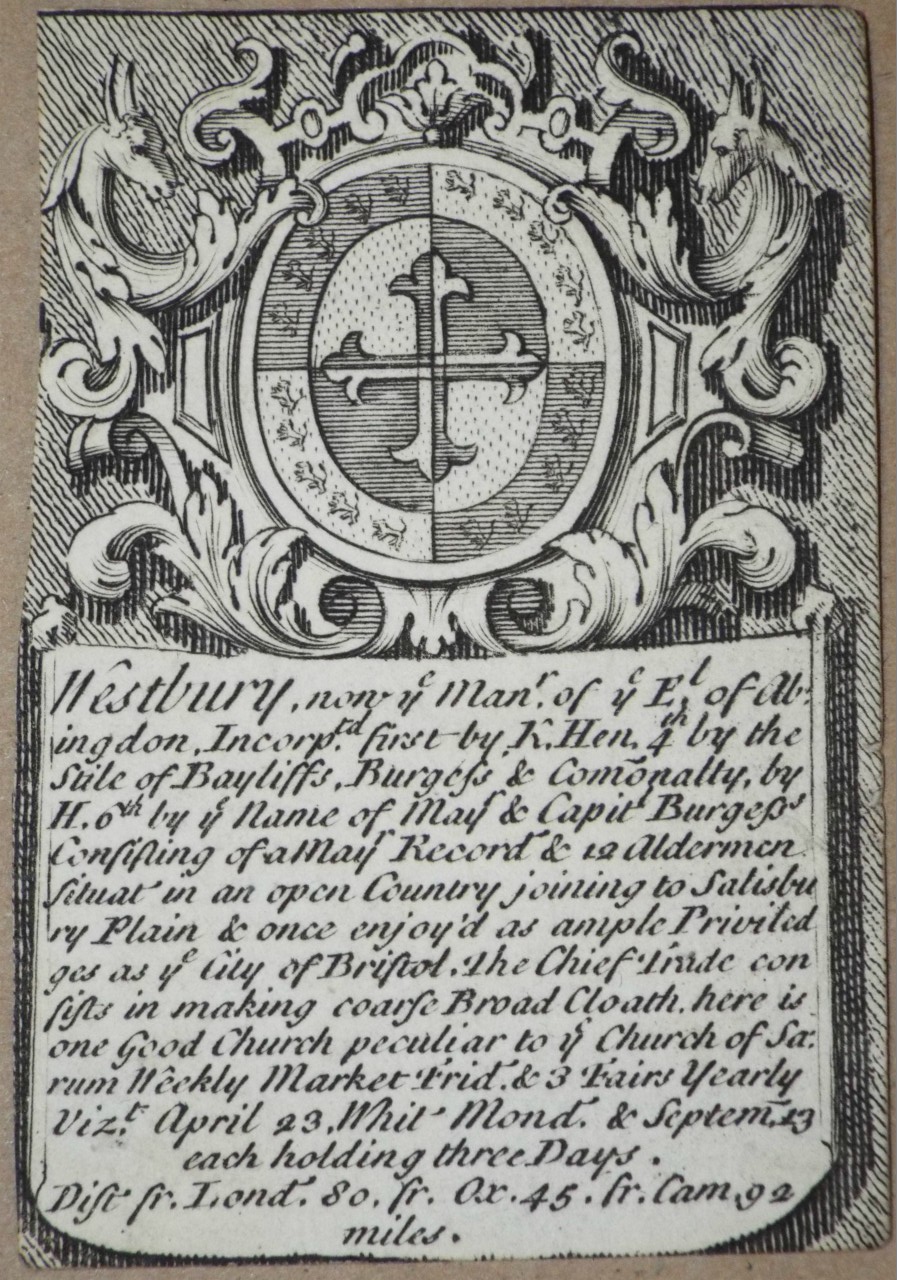 Westbury, now yᵉ Manʳ. of yᵉ Eˡ. of Ab:
ingdon, Incorpᵗᵈ. first by K. Hen. 4ᵗʰ by the
Stile of Bayliffs, Burgeſs & Com̃onalty, by
H. 6ᵗʰ by yᵉ Name of Mayʳ & Capitˡ Burgeſsˢ
Conſiſting of a Mayʳ Recordʳ & 12 Aldermen
ſituat in an open Country joining to Salisbu
ry Plain & once enjoy'd as ample Priviled
ges as yᵉ City of Briſtol. The Chief Trade con
ſiſts in making coarſe Broad Cloath. here is
one Good Church peculiar to yᵉ Church of Sa:
rum Weekly Market Frid. & 3 Fairs Yearly
Vizᵗ. April 23, Whit Mond. & Septem. 13
each holding three Days.
Diſt fr. Lond. 80. fr. Ox. 45. fr. Cam. 92
miles.